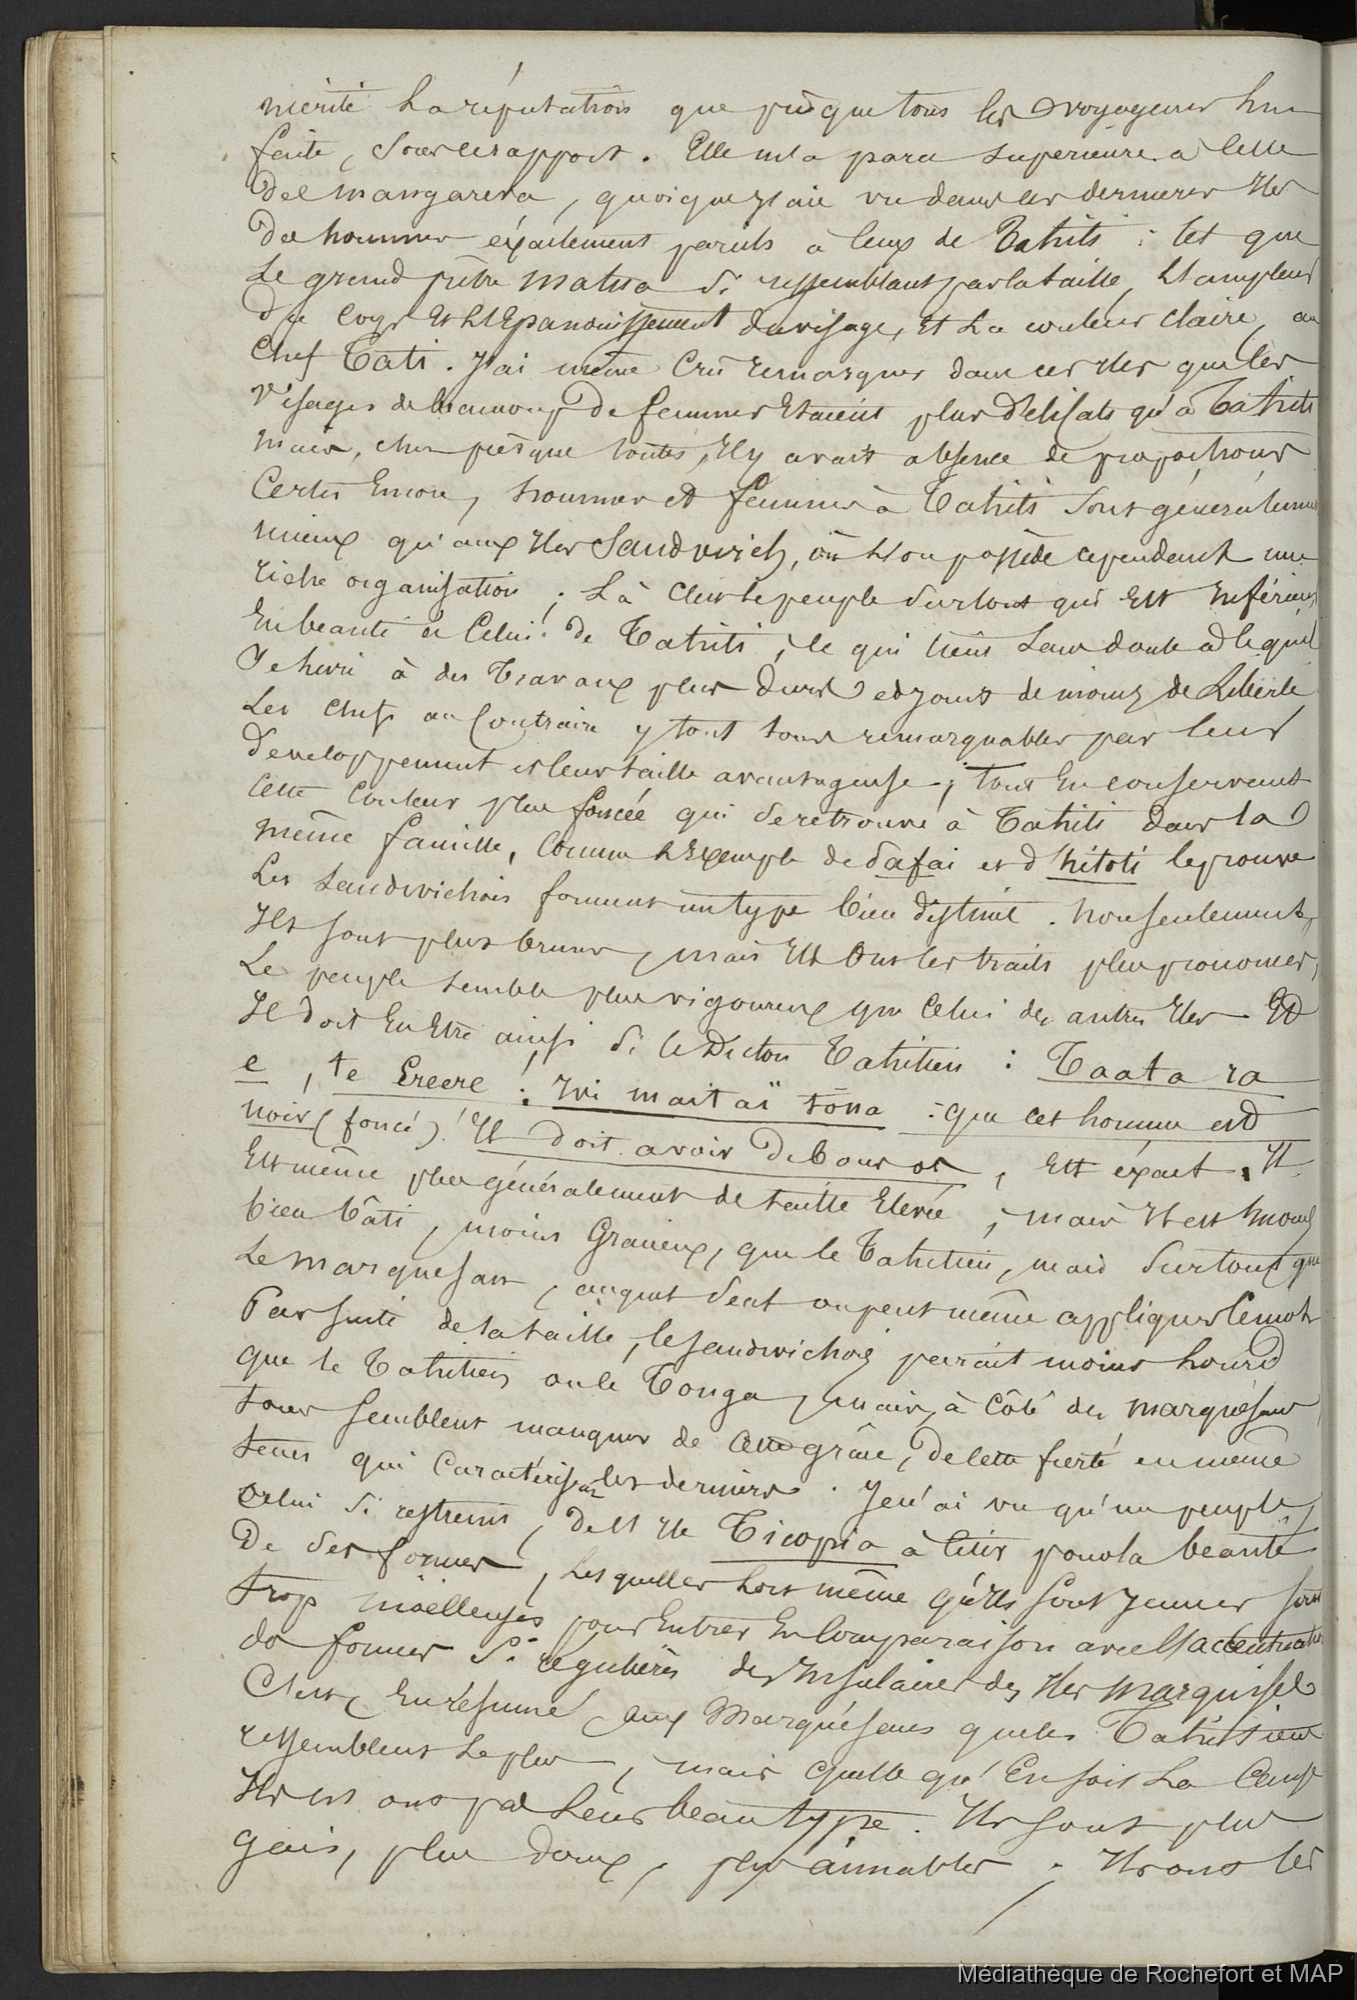 mérité la réputation que presque tous les voyageurs lui
faite, sous ce rapport. Elle m'a paru supérieure à celle
de Mangareva, quoique j'aie vu dans ces dernieres Iles
des hommes éxactement pareils à ceux de Tahiti : tel que
le grand prêtre Matua si ressemblant par la taille, L'ampleur
du corps Et L'Epanouissement du visage, Et La couleur claire, au
Chef Tati. J'ai même Crû remarquer dans ces Iles que les
Visages de beaucoup de femmes Etaient plus délicats qu'à Tahiti
mais, chez presque toutes, Il y avait absence de proportions
Certes Encore, hommes et femmes à Tahiti sont généralement
mieux qu'aux Iles Sandwich, où L'on possède cependant une
riche organisation ; Là c'est le peuple surtout qui Est Inférieur
En beauté à Celui de Tahiti, ce qui tient sans doute à ce qu'il
se livre à des travaux plus durs et jouit de moins de Liberté
Les chefs au Contraire y sont tous remarquables par leur
développement et leur taille avantageuse ; tout En conservant
cette Couleur plus foncée qui se retrouve à Tahiti dans la
même famille, Comme L'Exemple de Vafai et d'hitoti le prouve
Les Sandwichois forment un type bien distinct. Non seulement,
Ils sont plus bruns, mais Ils Ont les traits plus prononcés,
Le peuple semble plus vigoureux que Celui des autres Iles Et
Il doit En Etre ainsi si le Dicton Tahitien : Taata ra
e, te Ereere : Ivi maitaï tôna : que cet homme est
noir (foncé) ! Il doit avoir de bons os, Est éxact. Il
Est même plus généralement de taille Elevée, mais Il est moins
bien bâti, moins Gracieux, que le Tahitien, mais surtout que
Le Marquesan, auquel seul on peut même appliquer Ce mot
Par suite de la taille, le Sandwichois parait moins lourd
que le Tahitien ou le Tonga, mais, à Côté des Marquésans
tous semblent manquer de Cette grâce, de cette fierté en même
tems qui Caractérisent les derniers. Je n'ai vu qu'un peuple,
Celui si restreint, de L'Ile Ticopia à Citer pour la beauté
De ses formes, lesquelles Lors même qu'Ils sont Jeunes sont
trop moëlleuses pour Entrer En Comparaison avec L'accentuation
de formes si régulières des Insulaires des Iles Marquises
C'est, En résumé, aux Marquésans que les Tahitiens
ressemblent Le plus, mais quelle qu'En soit La Cause
Ils n'en ont pas Leur beau type. Ils sont plus
gais, plus doux, plus aimables ; Ils ont les
Médiathèque de Rochefort et MAP